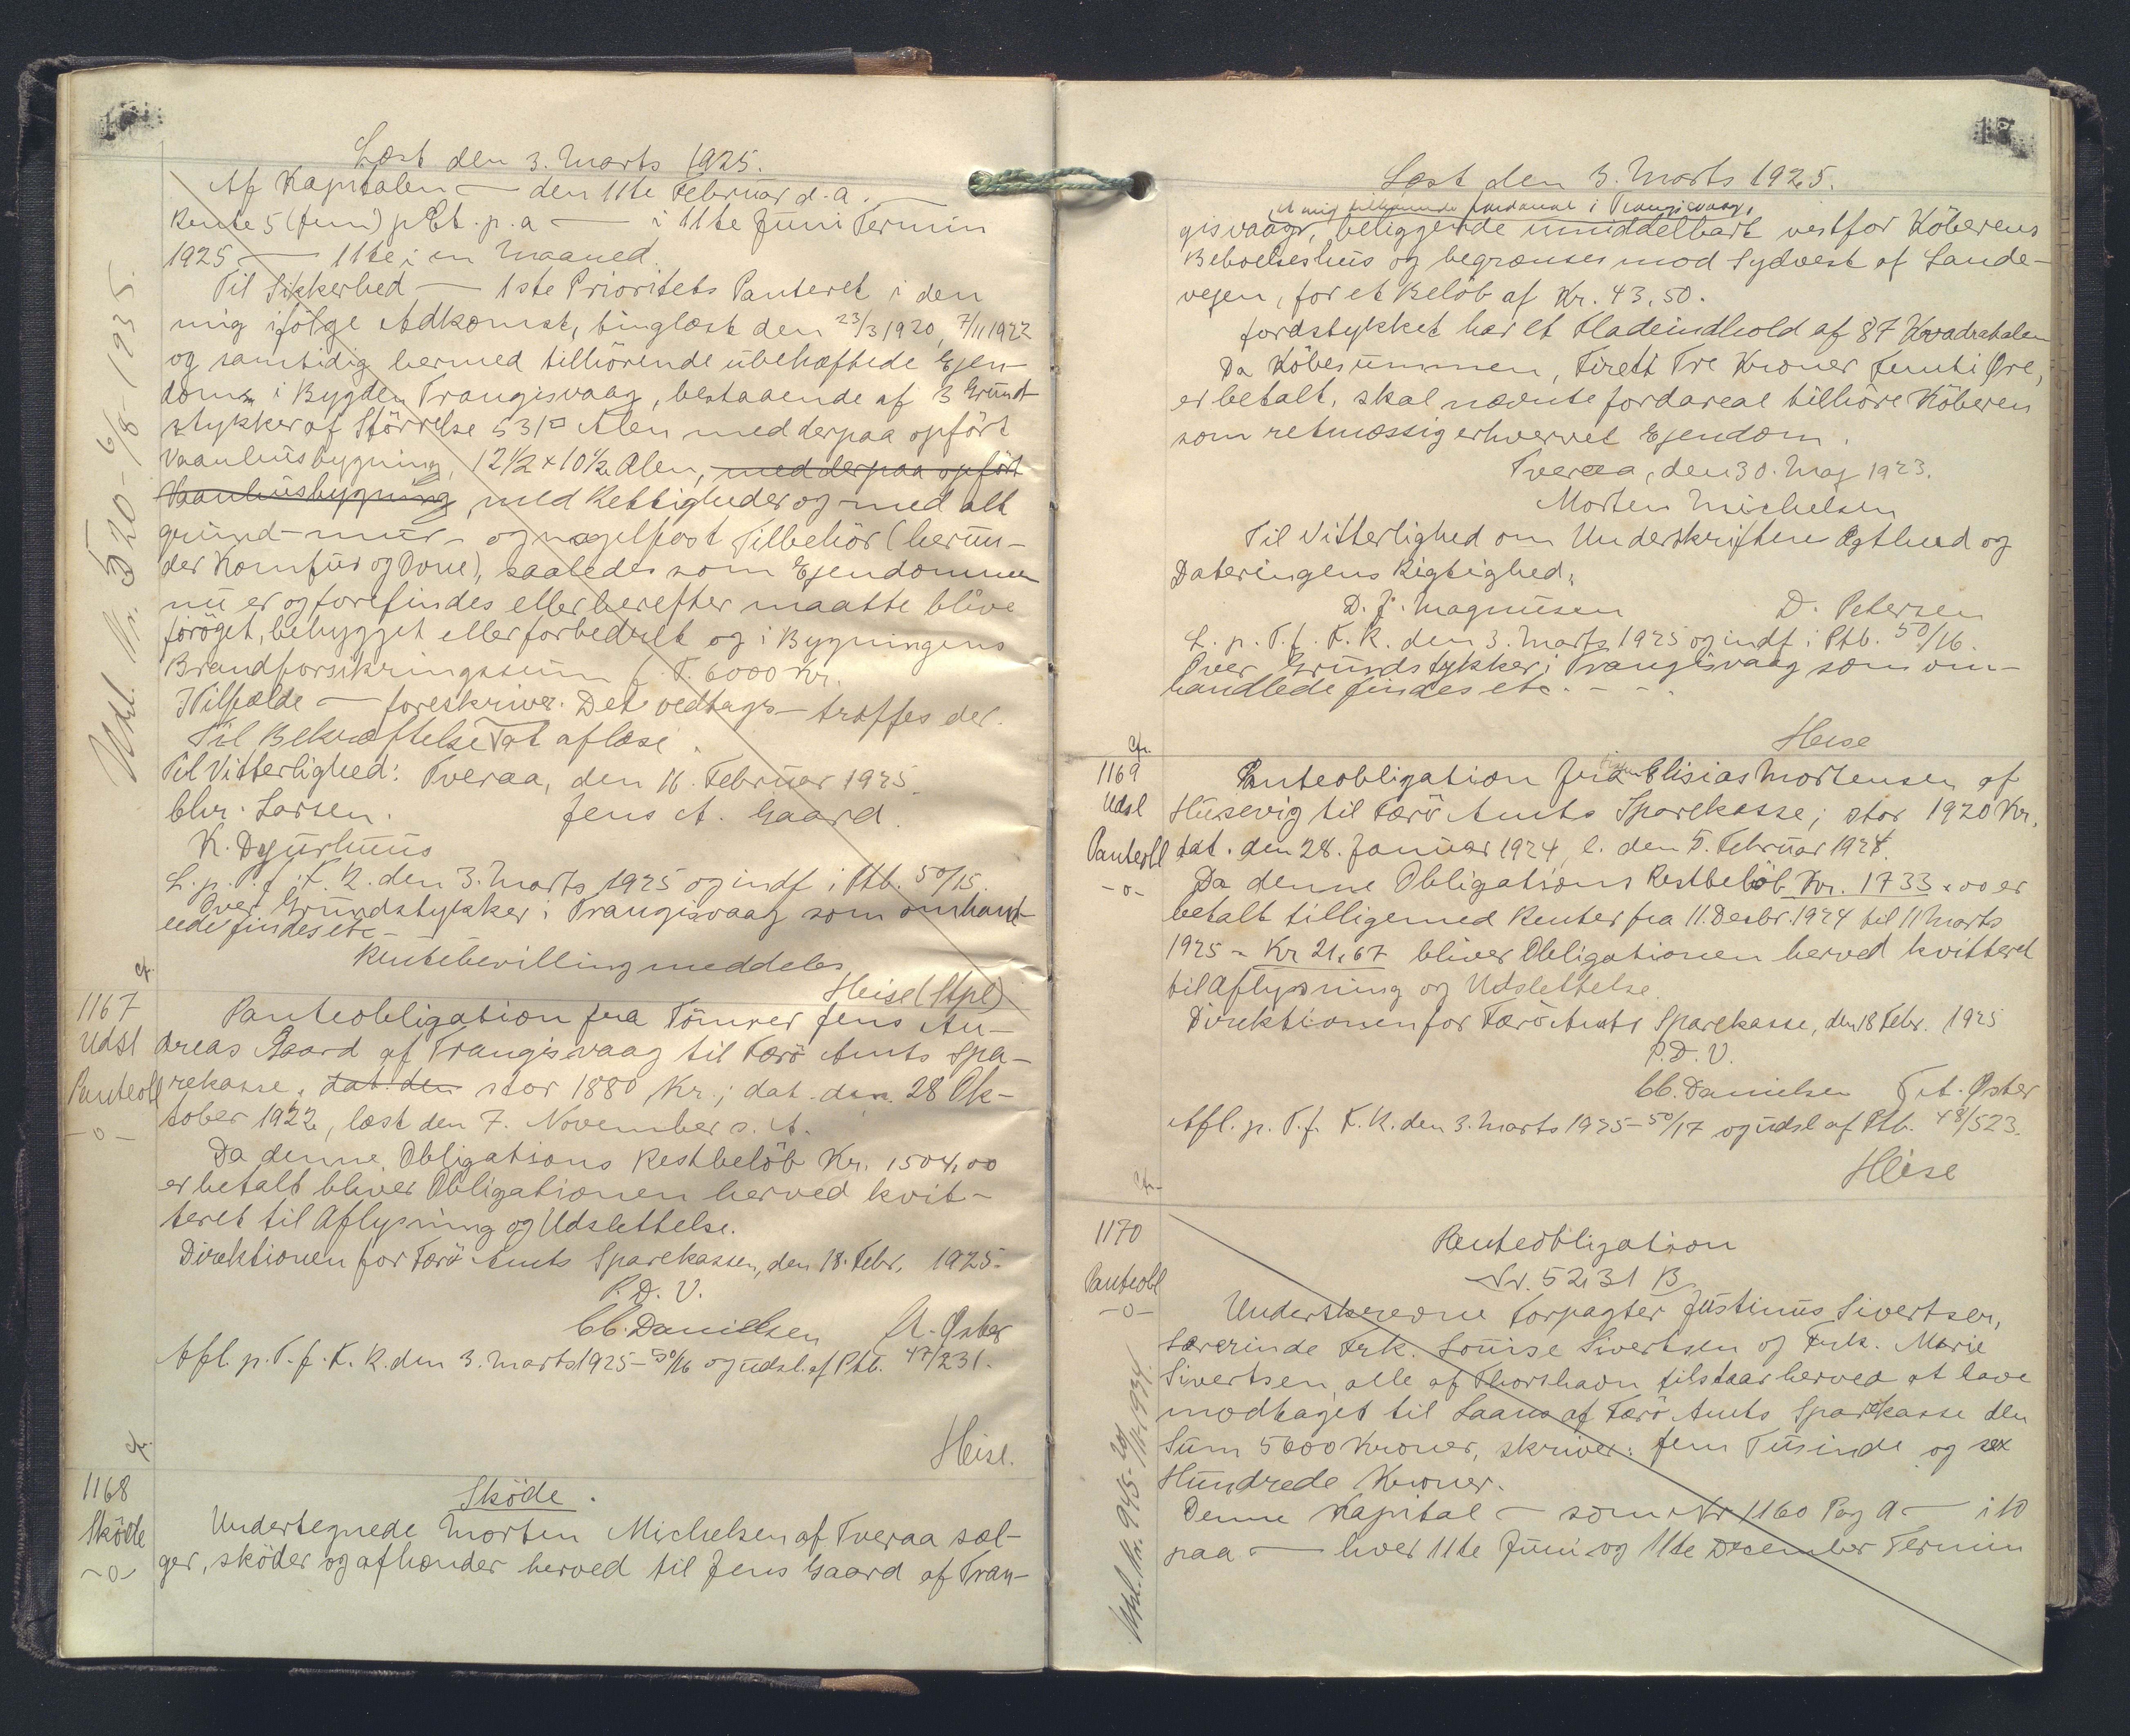 Læst den 3. Marts 1925.
Af Kapitalen — den 11te Februar d. a.
Rente 5 (fem) pCt. p. a — i 11te Juni Termin
1925 — 11te i en Maaned.
Til Sikkerhed — 1ste Prioritets Panteret i den
mig ifölge Adkomst, tinglæst den 23/3 1920, 7/11 1922
og samtidig hermed tilhörende ubehæftede Ejen-
dom i Bygden Trangisvaag, bestaaende af 3 Grund-
stykker af Störrelse 531□ Alen med derpaa opfört
Vaanhusbygning, 12½ x 10½ Alen, med derpaa opfört
Vaanhusbygning, med Rettigheder og med alt
grund- mur- og nagelfast Tilbehör (herun-
der Komfur og Ovne), saaledes som Ejendommen
nu er og forefindes eller herefter maatte blive
foröget, bebygget eller forbedret og i Bygningens
Brandforsikringssum f. T. 6000 Kr.
I Tilfælde — foreskriver. Det vedtages — træffes der.
Til Bekræftelse Tat aflæse.
Til Vitterlighed: Tveraa, den 16. Februar 1925.
Chr. Larsen. Jens A. Gaard.
K. Djurhuus
L. p. T. f. F. R. den 3. Marts 1925 og indf i Ptb. 50/15.
Over Grundstykker i Trangisvaag som omhand-
lede findes etc —
Rentebevilling meddeles
Heise (Stpl)
Udsl. Nr. 520 - 6/8 - 1935.
cfr.
1167
Udsl
Panteobl
-o-
Panteobligation fra Tömrer Jens An-
dreas Gaard af Trangisvaag til Færö Amts Spa-
rekasse, dat. den stor 1880 Kr.; dat. den 28 Ok-
tober 1922, læst den 7. November s. A.
Da denne Obligations Restbelöb Kr. 1504,00
er betalt bliver Obligationen herved kvit-
teret til Aflysning og Udslettelse.
Direktionen for Færö Amts Sparekassen, den 18. Febr. 1925.
P. D. V.
CC. Danielsen A. Öster
Afl. p. T. f. F. R. den 3. Marts 1925 - 50/16 og udsl. af Ptb. 47/231.
Heise.
cfr.
1168
Sköde
-o-
Sköde.
Undertegnede Morten Michelsen af Tveraa sæl-
ger, sköder og afhænder herved til Jens Gaard af Tran-
Læst den 3. Marts 1925.
et mig tilhörende Jordareal i Trangisvaag,
gisvaag, beliggende umiddelbart vestfor Köberens
Beboelseshus og begrænses mod Sydvest af Lande-
vejen, for et Belöb af Kr. 43,50.
Jordstykket har et Fladeindhold af 87 Kvadratalen
Da Köbesummen, Fireti Tre Kroner Femti Øre,
er betalt, skal nævnte Jordareal tilhöre Köberen
som retmæssig erhvervet Ejendom.
Tveraa, den 30. Maj 1923.
Morten Michelsen
Til Vitterlighed om Underskriftens Ægthed og
Dateringens Rigtighed:
D. J. Magnusen D. Petersen
L. p. T. f. F. R. den 3. Marts 1925 og indf i Ptb. 50/16.
Over Grundstykker i Trangisvaag som om-
handlede findes etc. - - .
Heise
cfr.
1169
Udsl
Panteobl
-o-
Panteobligation fra Elisias Mortensen af
Husevig til Færö Amts Sparekasse; stor 1920 Kr.
dat. den 28. Januar 1924, l. den 5. Februar 1924.
Da denne Obligations Restbelöb Kr. 1733.00 er
betalt tilligemed Renter fra 11. Decbr. 1924 til 11 Marts
1925 = Kr 21,67 bliver Obligationen herved kvitteret
til Aflysning og Udslettelse.
Direktionen for Færö Amts Sparekasse, den 18 Febr. 1925
P. D. V.
CC. Danielsen Fr. A. Öster
Afl. p. T. f. F. R. den 3. Marts 1925 - 50/17 og udsl af Ptb. 48/523.
Heise
cfr.
1170
Panteobl
-o-
Panteobligation
Nr. 5231 B
Underskrevne Forpagter Justinus Sivertsen,
Lærerinde Frk. Louise Sivertsen og Frk. Marie
Sivertsen, alle af Thorshavn tilstaar herved at have
modtaget til Laans af Færö Amts Sparekasse den
Sum 5600 Kroner, skriver: fem Tusinde og sex
Hundrede Kroner.
Denne Kapital — som Nr 1160 Pag 9 — i 10
paa — hver 11te Juni og 11te December Termin